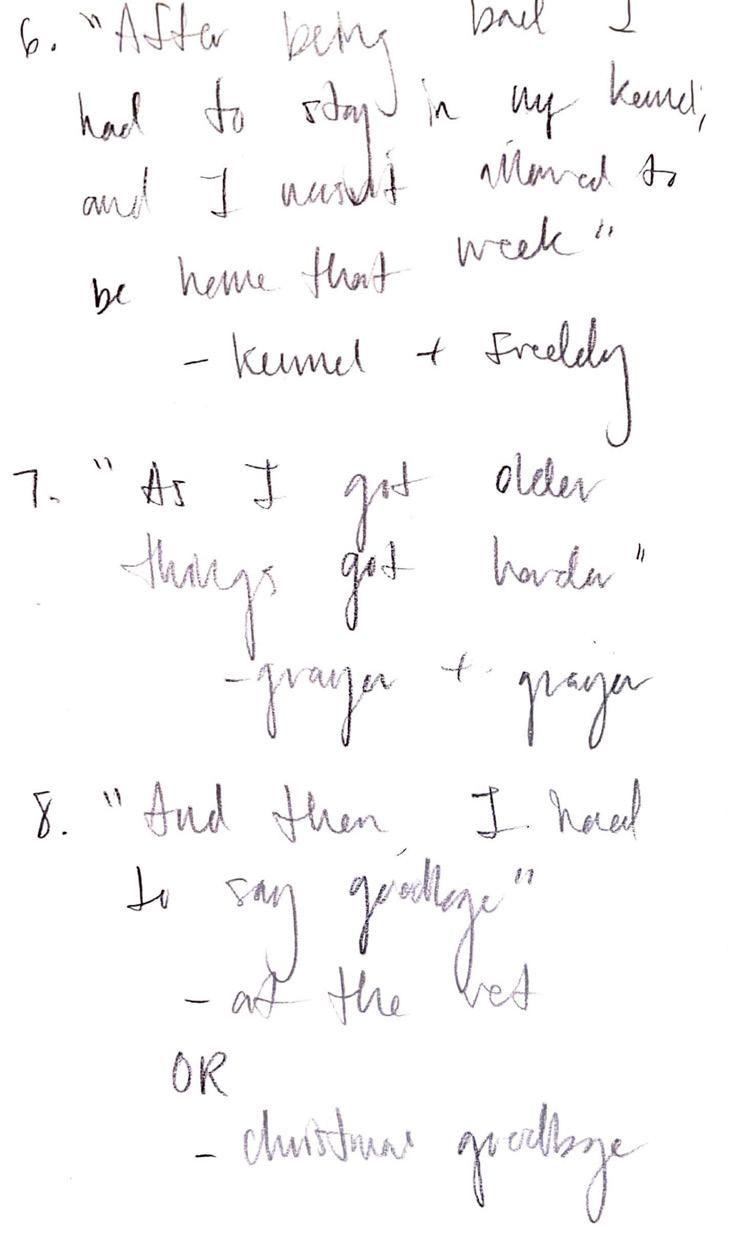 6. "After being bad I
had to stay in my kennel,
and I wasn't allowed to
be home that week"
- kennel + Freddy
7. "As I got older
things got harder"
- grayer + grayer
8. "And then I had
to say goodbye"
- at the vet
OR
- christmas goodbye